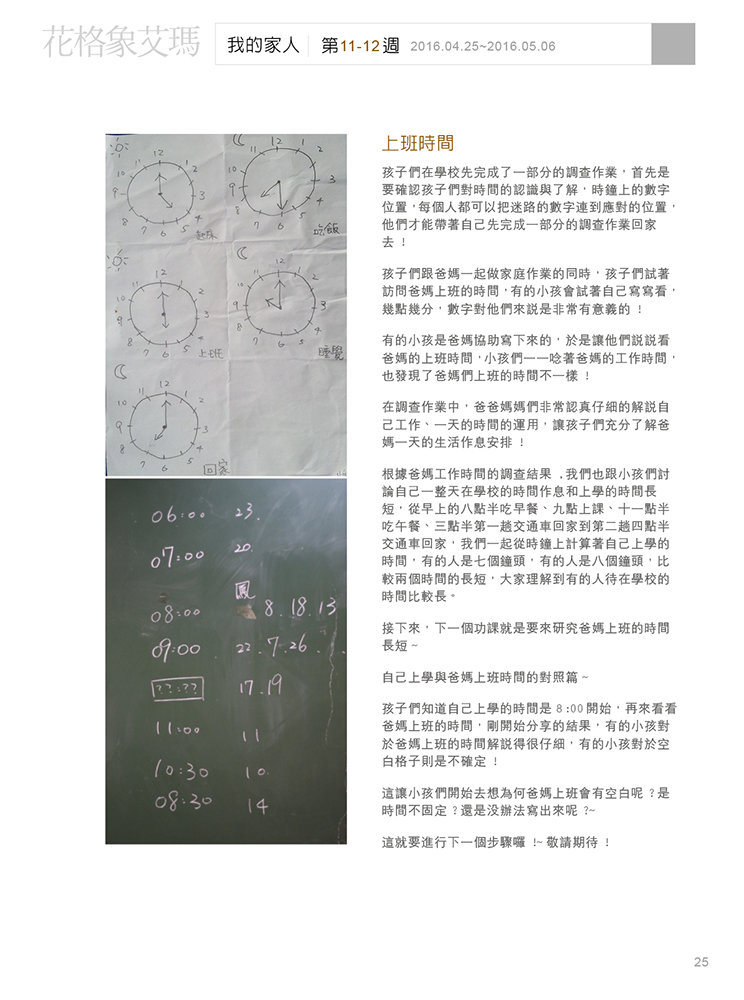 花格象艾瑪
我的家人 第11-12週 2016.04.25~2016.05.06
12
1
2
3
4
5
6
7
8
9
10
11
起床
12
1
2
3
4
5
6
7
8
9
10
11
吃飯
12
1
2
3
4
5
6
7
8
9
10
11
上班
12
1
2
3
4
5
6
7
8
9
10
11
睡覺
12
1
2
3
4
5
6
7
8
9
10
11
回家
06:00 23.
07:00 20.
鳳
08:00 8.18.13
09:00 22.7.26.
??:?? 17.19
11:00 11
10:30 10.
08:30 14
上班時間
孩子們在學校先完成了一部分的調查作業，首先是
要確認孩子們對時間的認識與了解，時鐘上的數字
位置，每個人都可以把迷路的數字連到應對的位置，
他們才能帶著自己先完成一部分的調查作業回家
去！
孩子們跟爸媽一起做家庭作業的同時，孩子們試著
訪問爸媽上班的時間，有的小孩會試著自己寫寫看，
幾點幾分，數字對他們來說是非常有意義的！
有的小孩是爸媽協助寫下來的，於是讓他們說說看
爸媽的上班時間，小孩們一一唸著爸媽的工作時間，
也發現了爸媽們上班的時間不一樣！
在調查作業中，爸爸媽媽們非常認真仔細的解說自
己工作、一天的時間的運用，讓孩子們充分了解爸
媽一天的生活作息安排！
根據爸媽工作時間的調查結果，我們也跟小孩們討
論自己一整天在學校的時間作息和上學的時間長
短，從早上的八點半吃早餐、九點上課、十一點半
吃午餐、三點半第一趟交通車回家到第二趟四點半
交通車回家，我們一起從時鐘上計算著自己上學的
時間，有的人是七個鐘頭，有的人是八個鐘頭，比
較兩個時間的長短，大家理解到有的人待在學校的
時間比較長。
接下來，下一個功課就是要來研究爸媽上班的時間
長短~
自己上學與爸媽上班時間的對照篇~
孩子們知道自己上學的時間是 8:00 開始，再來看看
爸媽上班的時間，剛開始分享的結果，有的小孩對
於爸媽上班的時間解說得很仔細，有的小孩對於空
白格子則是不確定！
這讓小孩們開始去想為何爸媽上班會有空白呢？是
時間不固定？還是沒辦法寫出來呢？~
這就要進行下一個步驟囉！~ 敬請期待！
25